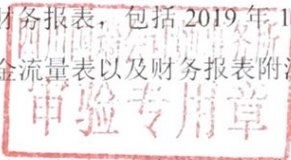 财务报表，包括 2019 年 1
金流量表以及财务报表附注
审验专用章